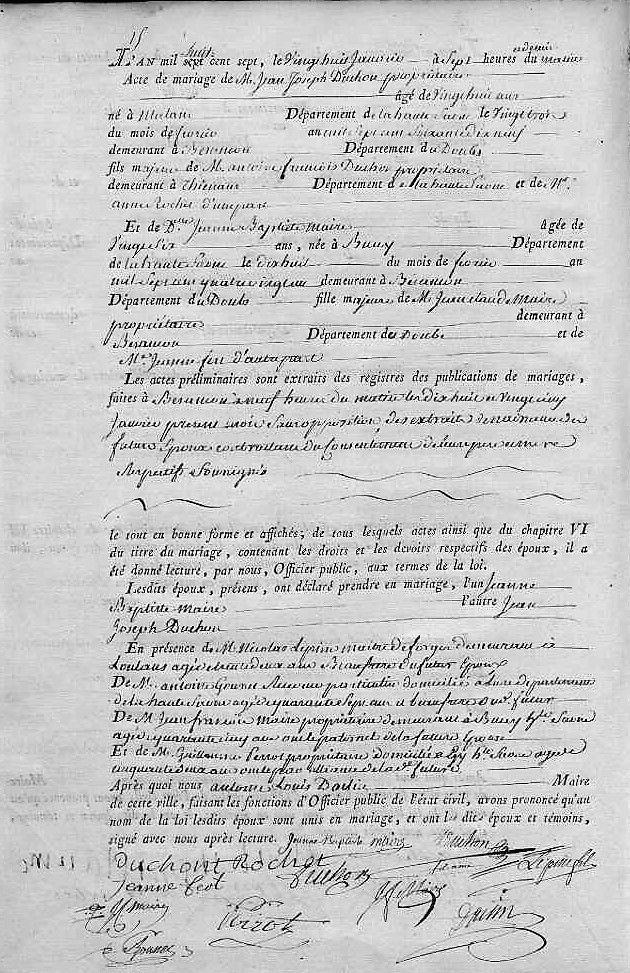 15
L'AN mil huit cent sept, le Vingthuit Janvier à Sept heures et demie du matin
Acte de mariage de M. Jean Joseph Duchon propriétaire
âgé de Vingthuit ans
né à Département de la haute Saone le Vingt trois
du mois de fevrier an mil Sept cent Soixante dix neuf
demeurant à Besancon Département du Doubs
fils majeur de M. antoine francois Duchon propriétaire
demeurant à Département de la haute Saone et de Me.
anne Rochet d'une part
Et de Dlle Jeanne Baptiste maire âgée de
Vingt Six ans, née à Bucey Département
de la haute Saone le dixhuit du mois de fevrier an
mil Sept cent quatre vingt un demeurant à Besancon
Département du Doubs fille majeure de M. Jean claude Maire
propriétaire demeurant à
Besancon Département du Doubs et de
Me. Jeanne fert d'autre part
Les actes préliminaires sont extraits des registres des publications de mariages,
faites à Besancon à neuf heures du matin les dix huit et Vingt cinq
Janvier present mois Sans opposition, des extraits de naissance des
futurs Epoux et du Consentement de leurs pere et mere
respectifs Soussignés
le tout en bonne forme et affichés; de tous lesquels actes ainsi que du chapitre VI
du titre du mariage, contenant les droits et les devoirs respectifs des époux, il a
été donné lecture, par nous, Officier public, aux termes de la loi.
Lesdits époux, présens, ont déclaré prendre en mariage, l'un Jeanne
Baptiste Maire l'autre Jean
Joseph Duchon
En présence de M. Nicolas Lepine maitre de forges demeurant à
Loulans agé de trente deux ans Beaufrere du futur Epoux
De M. antoine domicilié à Lure departement
de la haute Saone agé de quarante Sept ans et beaufrere du futur
De M. Jean francois maire propriétaire demeurant à Bucey hte Saone
agé de quarante cinq ans oncle paternel de la future Epouse
Et de M. Guillaume Perrot propriétaire domicilié à Gy hte Saone agé de
cinquante deux ans oncle par alliance de la de future
Après quoi nous antoine Louis Daclin Maire
de cette ville, faisant les fonctions d'Officier public de l'état civil, avons prononcé qu'au
nom de la loi lesdits époux sont unis en mariage, et ont les dits époux et témoins,
signé avec nous après lecture. Jeanne Baptiste maire Duchon
Duchont Rochet Duchon Lepine
Jeanne fert J f Maire
maire Perrot Daclin